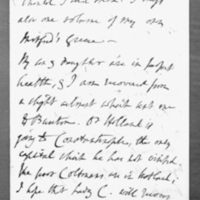 also one volume of my own
Mitford's Greece —
My as daughter are in perfect
health, & I am recovered from
a slight attack which sent me
to Buxton. Dr Holland is
going to Constantinople, the only
capital which he has not visited.
The poor Coltmans are in Scotland.
I hope that Lady C. will recover